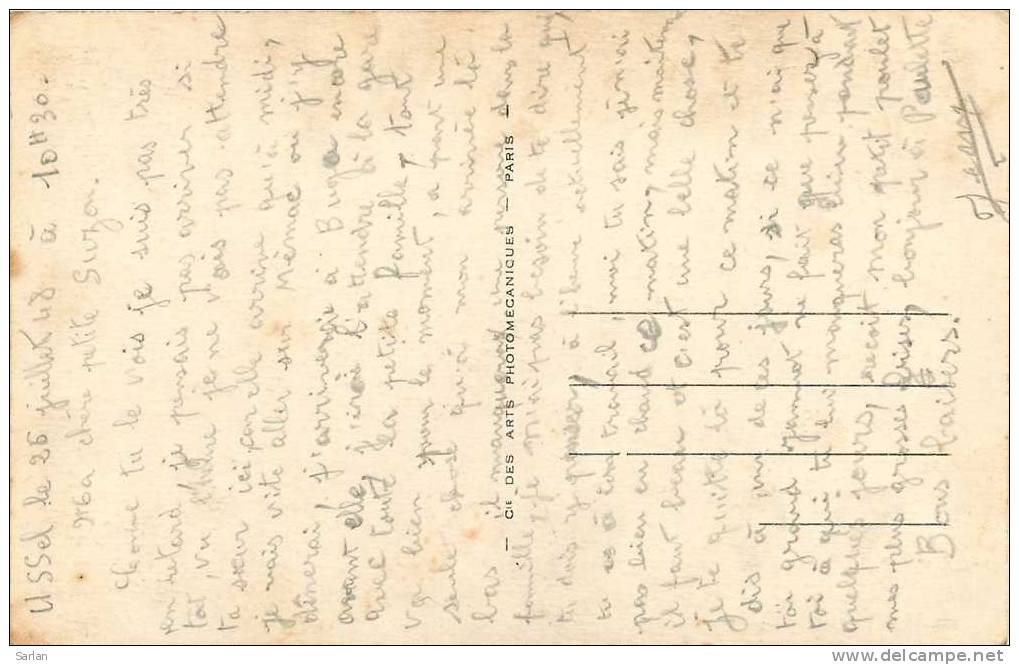 USSel le 26 juillet 48 à 10H30.
Ma chère petite Suzon.
Comme tu le vois je suis pas très
en retard, je pensais pas arriver si
tot, vu l'heure je ne vais pas attendre
ta sœur ici, car elle arrive qu'à midi,
je vais vite aller sur Mémac ou j'y
dinerai, j'arriverai à Bugea encore
avant elle, j'irai l'attendre à la gare
avec toute la petite famille, tout
va bien pour le moment, à part une
seule chose qu'à mon arrivée là
bas il manquera une persone dans la
famille, je n'ai pas besoin de te dire qui,
tu dois y penser, à l'heure actuellement
tu es à ton travail, moi tu sais j'en ai
pas bien eu chaud ce matin, mais maintenant
il fait beau et c'est une belle chose,
je te quitte là pour ce matin et te
dis à un de ces jours, si ce n'ai que
toi grand ne fait que penser à
toi à qui tu lui manqueras bien pendant
quelques jours, recoit mon petit poulet
mes plus grosses bises, bonjour à Paulette
Bons baisers.
— CIE DES ARTS PHOTOMÉCANIQUES — PARIS —
Sarlan
www.delcampe.net